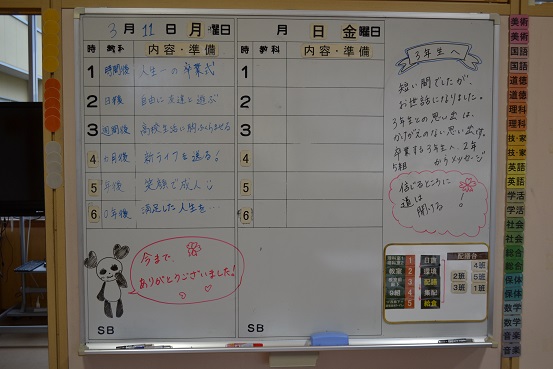 3月11日月曜日
時 教科 内容・準備
1 時間後 人生一の卒業式
2 日後 自由に友達と遊ぶ
3 週間後 高校生活に胸ふくらませる
4 カ月後 新ライフを送る!
5 年後 笑顔で成人
6 0年後 満足した人生を…
今まで
ありがとうございました!
SB
月 日 金曜日
時 教科 内容・準備
1
2
3
4
5
6
SB
3年生へ
短い間でしたが、
お世話になりました。
3年生との思い出は、
かけがえのない思い出です。
卒業する3年生へ 2年
5組 からメッセージ
信じるところに
道は
開ける!
教室
1 日直
2 環境
3 配膳
4 集配
5 給食
配膳台
4班
2班 5班
3班 1班
美術
美術
国語
国語
道徳
道徳
理科
理科
技・家
技・家
英語
英語
学活
学活
総合
総合
保体
保体
数学
数学
音楽
音楽